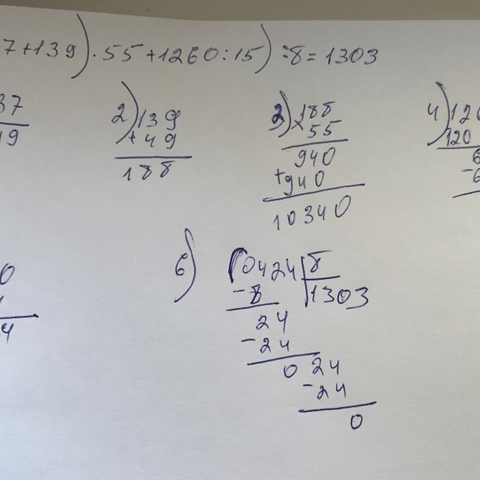 7+139)·55+1260:15):8=1303
37
19
2) 139
+49
188
3) 188
×55
940
+940
10340
4) 126
120
6
-6
0
4
6) 10424 | 8
-8 | 1303
24
-24
0 24
-24
0